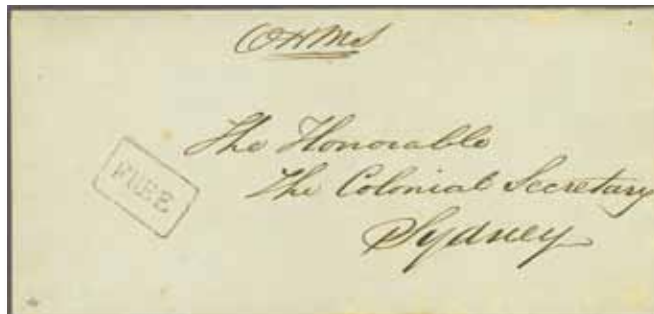 OHMS
The Honorable
The Colonial Secretary
Sydney
FREE